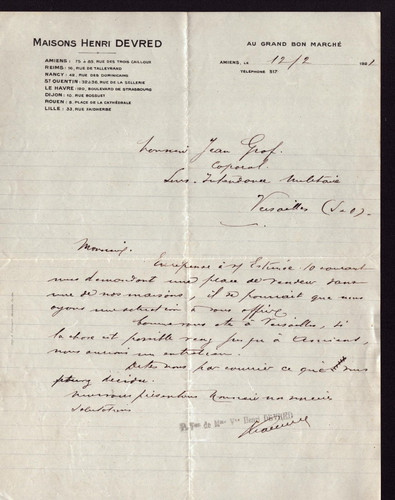 MAISONS HENRI DEVRED
AMIENS : 75 & 82, RUE DES TROIS CAILLOUX
REIMS : 16, RUE DE TALLEYRAND
NANCY : 46, RUE DES DOMINICAINS
ST QUENTIN : 32 & 36, RUE DE LA SELLERIE
LE HAVRE : 120, BOULEVARD DE STRASBOURG
DIJON : 10, RUE BOSSUET
ROUEN : 8, PLACE DE LA CATHÉDRALE
LILLE : 33, RUE FAIDHERBE
AU GRAND BON MARCHÉ
AMIENS, LE 12/2
TÉLÉPHONE 517
Monsieur Jean Graf.
Caporal
Sous-Intendance Militaire
Versailles (S-O).
Monsieur,
En réponse à v/ Estimée 10 courant
nous demandant une place de vendeur dans
une de nos maisons, il se pourrait que nous
ayons une situation à vous offrir.
vous à Versailles, si
la chose est possible venez jusqu'à Amiens,
nous aurions un entretien.
Dites nous par courrier ce que vous
décidez.
Monsieur nos
salutations
P. Pon de Mme Vve Henri DEVRED